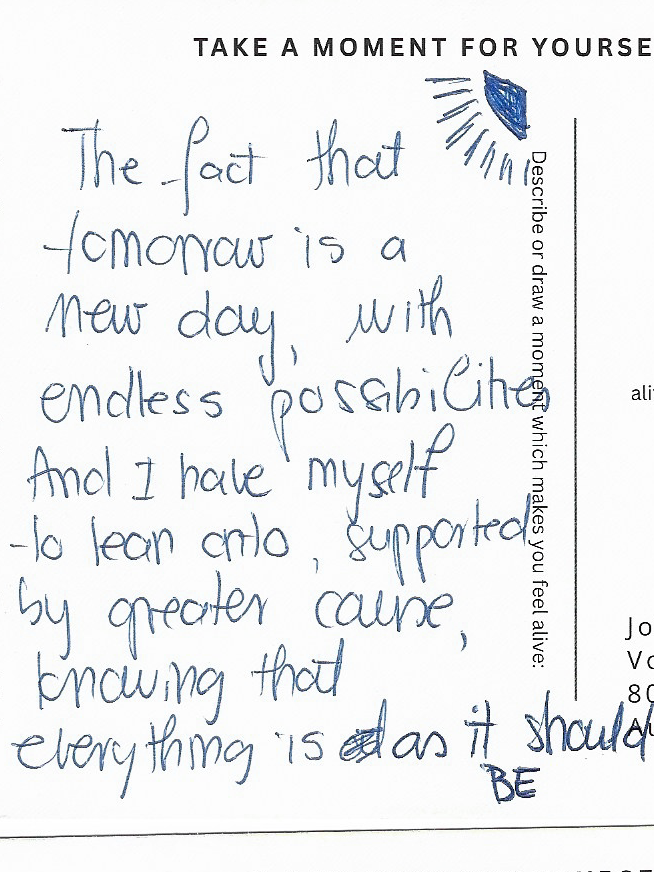 TAKE A MOMENT FOR YOURSE
The fact that
tomorrow is a
new day, with
endless possibilities
And I have myself
to lean onto, supported
by greater cause,
knowing that
everything is as it should
BE
Describe or draw a moment which makes you feel alive:
ali
Jo
Vo
80
Au